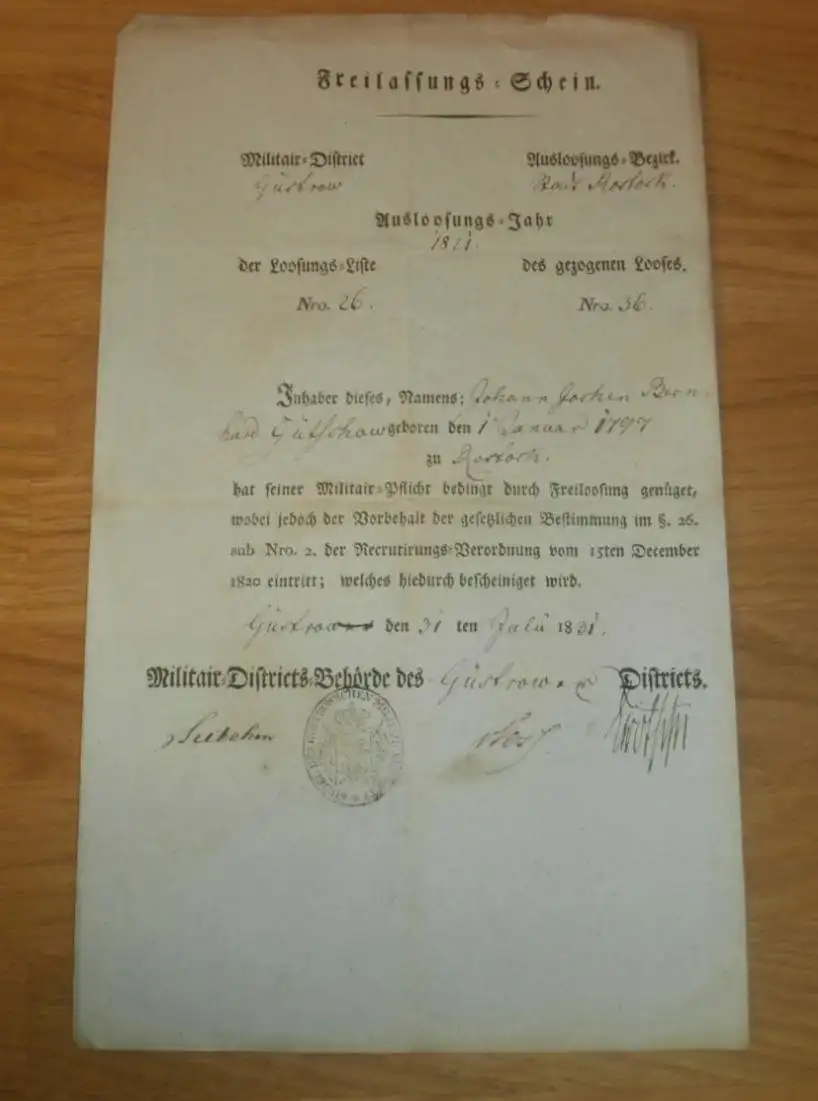 Freilassungs-Schein.
Militair-District Ausloosungs-Bezirk.
Güstrow Rostock.
Ausloosungs-Jahr
1821.
der Loosungs-Liste des gezogenen Looses.
Nro. 26. Nro. 36.
Inhaber dieses, Namens: Johann Jochen Bern-
hard Gütschow geboren den 1 Januar 1797
zu Rostock.
hat seiner Militair-Pflicht bedingt durch Freiloosung genüget,
wobei jedoch der Vorbehalt der gesetzlichen Bestimmung im §. 26.
sub Nro. 2. der Recrutirungs-Verordnung vom 15ten December
1820 eintritt; welches hiedurch bescheiniget wird.
Güstrow den 31 ten July 1821.
Militair-Districts-Behörde des Güstrower Districts.